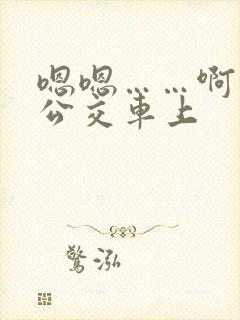 嗯嗯……啊
公交車上
驚泓